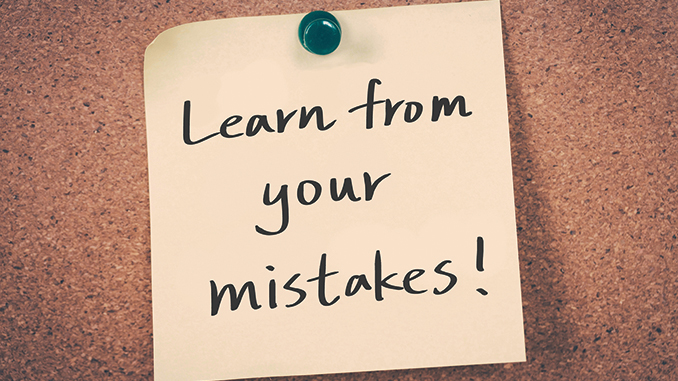 Learn from
your
mistakes!